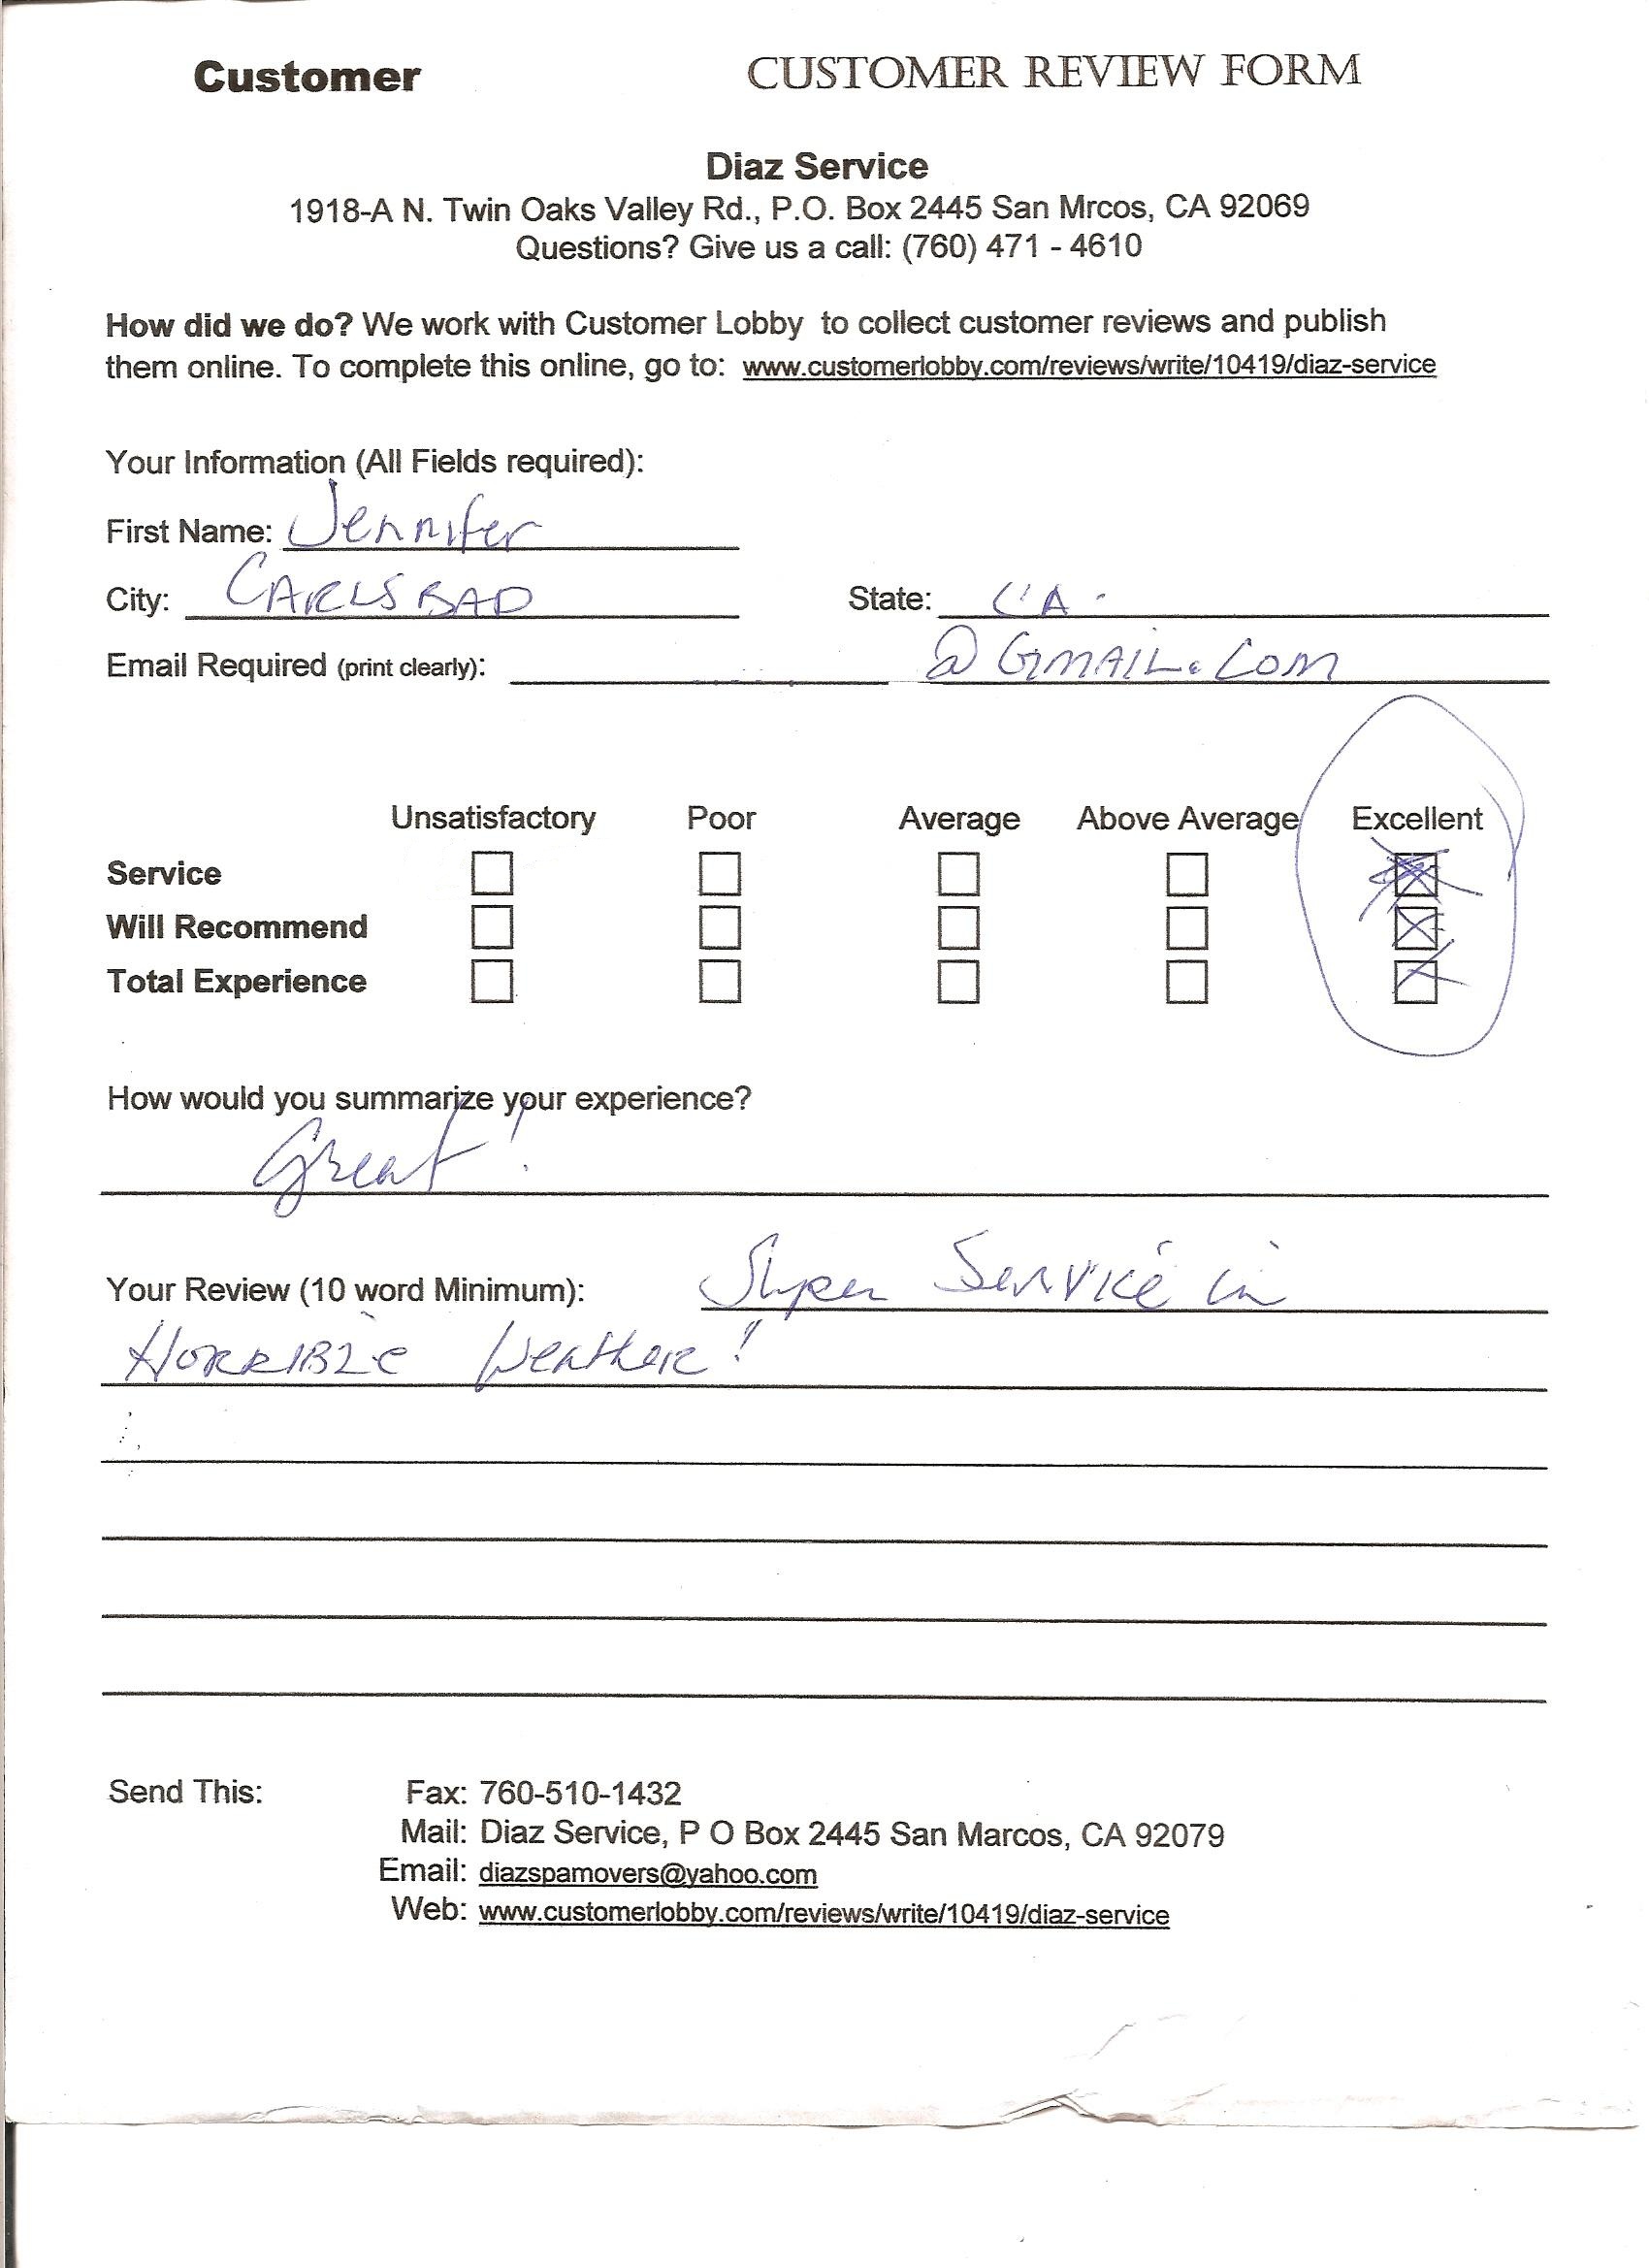 Customer CUSTOMER REVIEW FORM
Diaz Service
1918-A N. Twin Oaks Valley Rd., P.O. Box 2445 San Mrcos, CA 92069
Questions? Give us a call: (760) 471 - 4610
How did we do? We work with Customer Lobby to collect customer reviews and publish
them online. To complete this online, go to: www.customerlobby.com/reviews/write/10419/diaz-service
Your Information (All Fields required):
First Name: Jennifer
City: CARLSBAD State: CA.
Email Required (print clearly): @GMAIL.COM
Unsatisfactory Poor Average Above Average Excellent
Service
Will Recommend
Total Experience
How would you summarize your experience?
Great!
Your Review (10 word Minimum): Super Service in
HORRIBLE Weather!
Send This: Fax: 760-510-1432
Mail: Diaz Service, P O Box 2445 San Marcos, CA 92079
Email: diazspamovers@yahoo.com
Web: www.customerlobby.com/reviews/write/10419/diaz-service